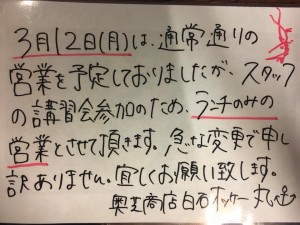 3月12日(月)は、通常通りの
営業を予定しておりましたが、スタッフ
の講習会参加のため、ランチのみの
営業とさせて頂きます。急な変更で申し
訳ありません。宜しくお願い致します。
奥芝商店白石オッケー